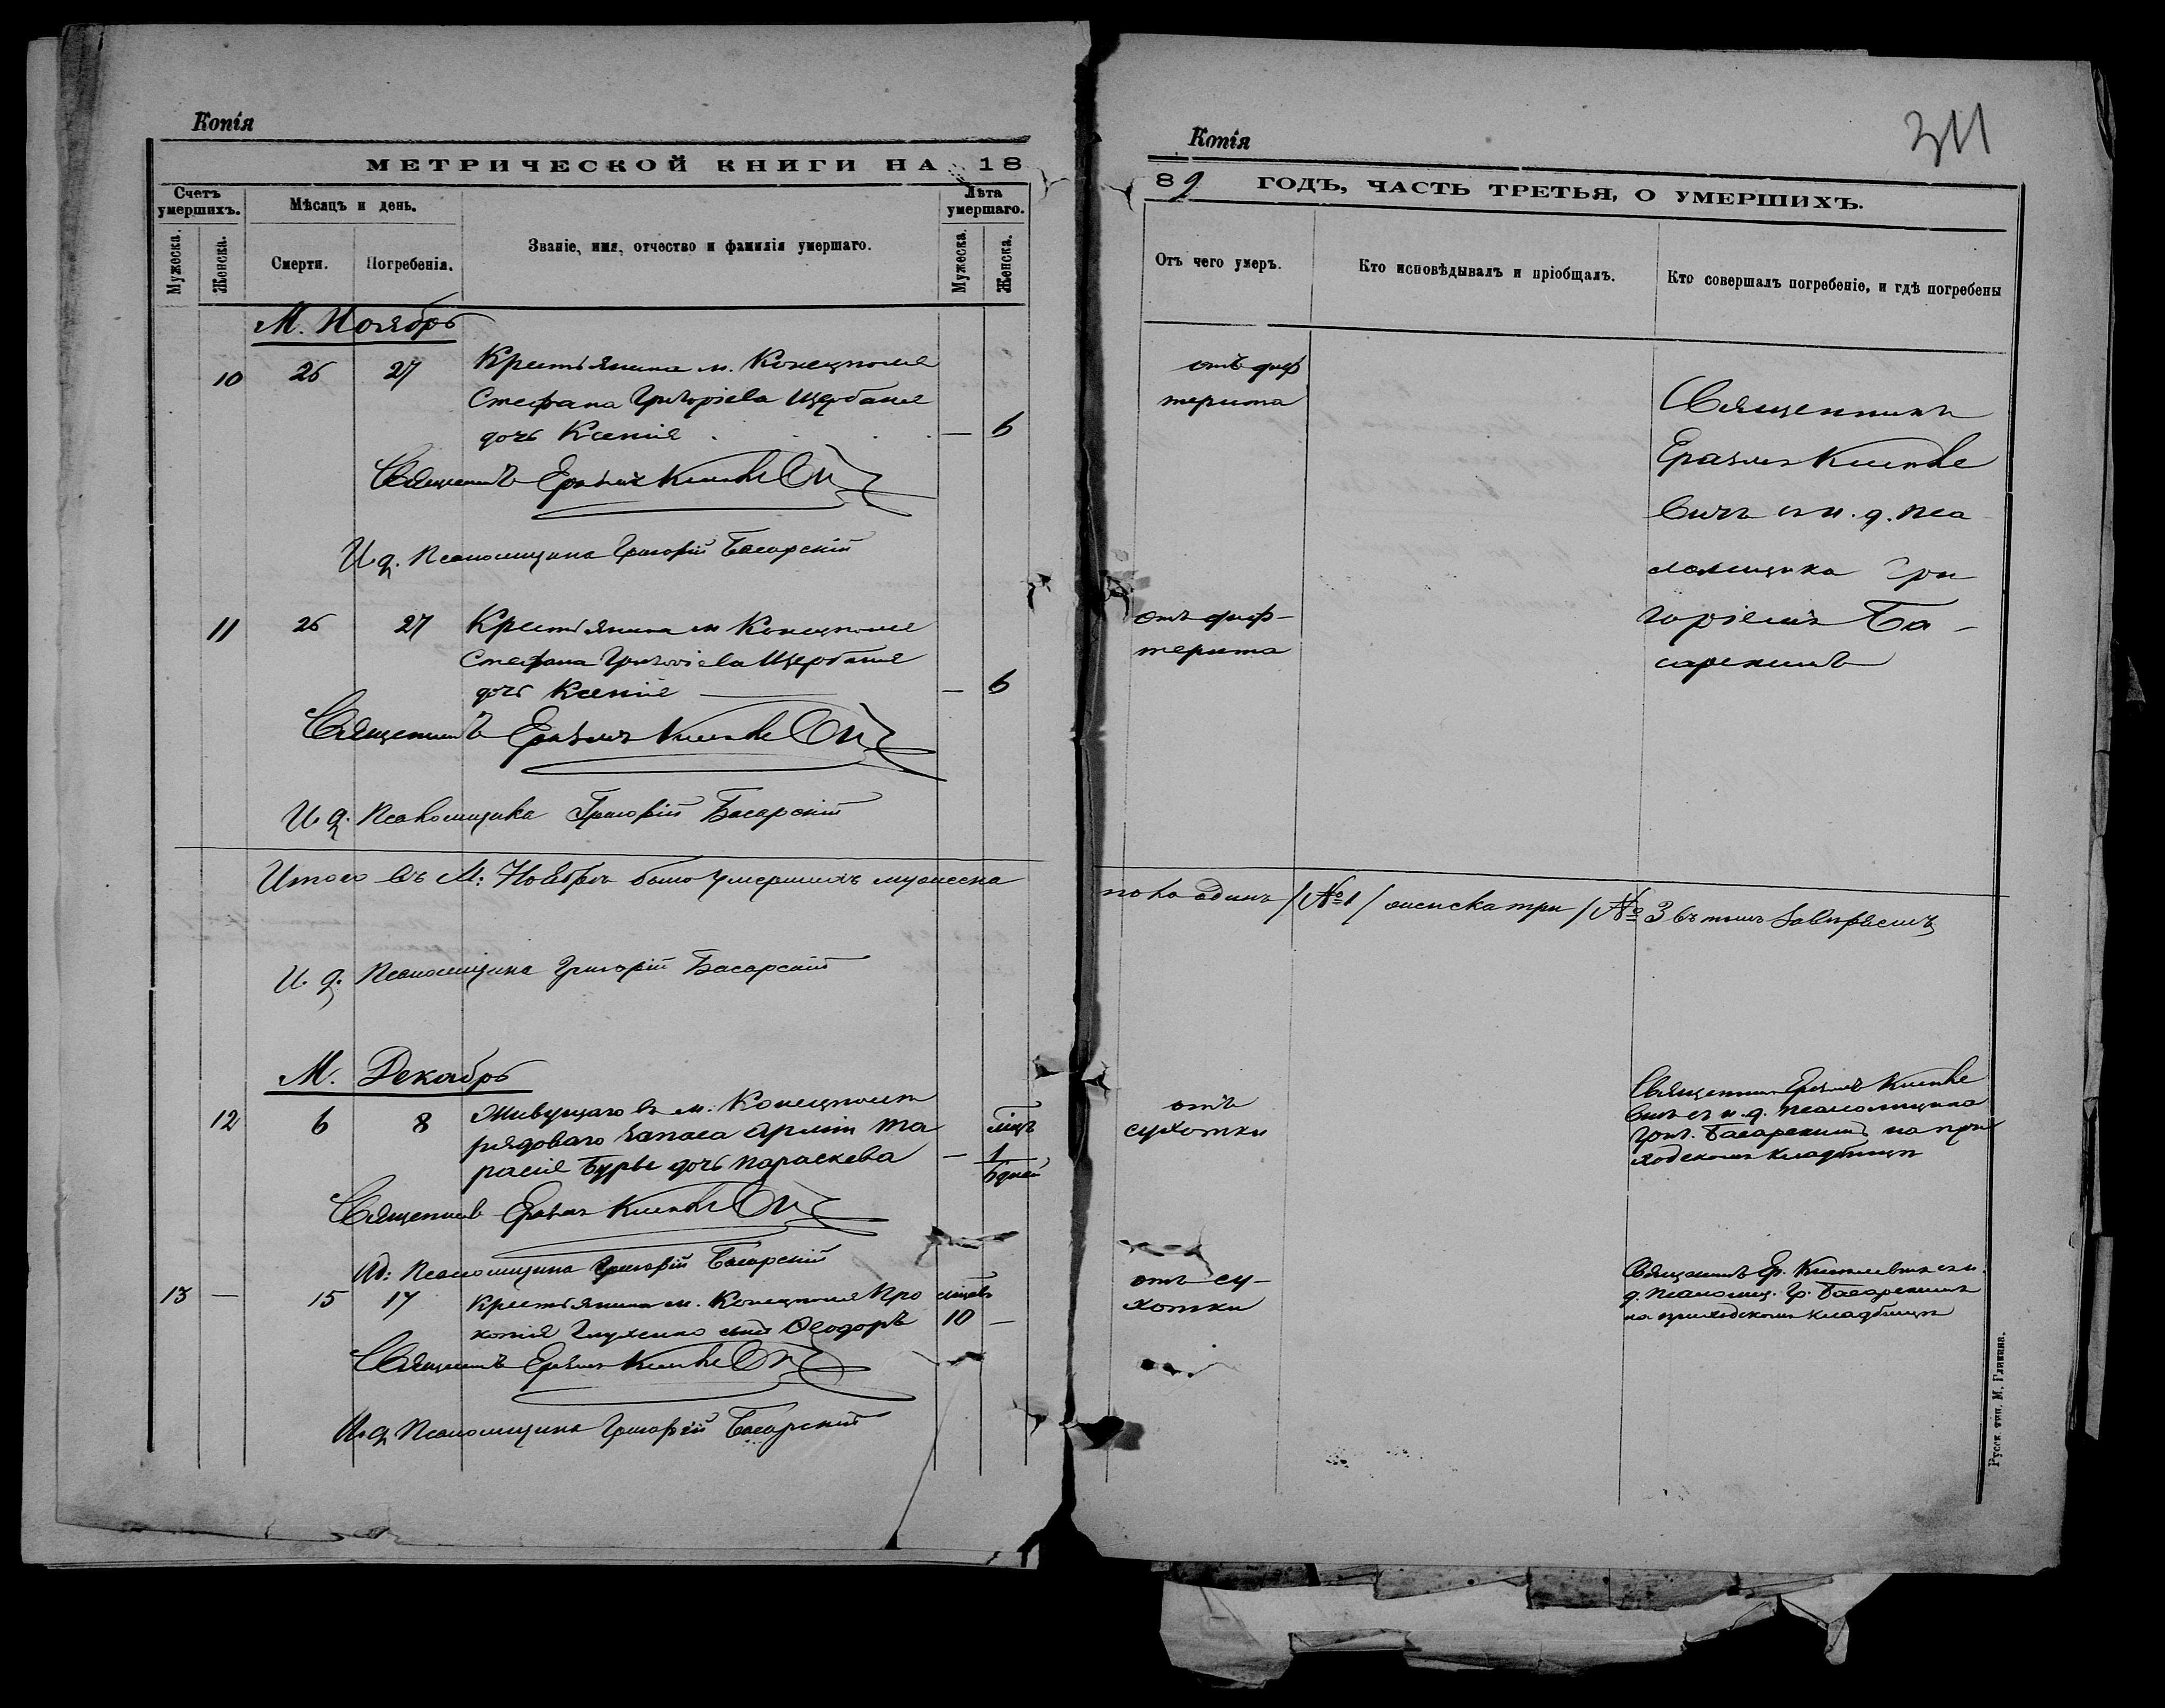 Копія
МЕТРИЧЕСКОЙ КНИГИ НА 18
Счетъ умершихъ.
Мужеска.
Женска.
Мѣсяцъ и день.
Смерти.
Погребенія.
Званіе, имя, отчество и фамилія умершаго.
Лѣта умершаго.
Мужеска.
Женска.
М. Ноябрь
10 26 27 Крестьянина м. Конецполя
Стефана Григоріева Щербаня
дочь Ксенія — 6
Священникъ Еразмъ
И. д. Псаломщика Григорій Басарскій
11 26 27 Крестьянина м Конецполя
Стефана Григоріева Щербаня
дочь Ксенія — 6
Священникъ Еразмъ
И. д. Псаломщика Григорій Басарскій
Итого въ М: Ноябрѣ было умершихъ мужеска
И. д. Псаломщика Григорій Басарскій
М. Декабрь
12 6 8 Живущаго въ м: Конецполѣ
рядоваго запаса арміи Та
расія Бурьи дочь Параскева — 1 мцъ 6 дней
Священникъ Еразмъ
Ид: Псаломщика Григорій Басарскій
13 — 15 17 Крестьянина м. Конецполя Про
копія сынъ Ѳеодоръ 10 —
Священникъ Еразмъ
И. д. Псаломщика Григорій Басарскій
Копія
311
89 ГОДЪ, ЧАСТЬ ТРЕТЬЯ, О УМЕРШИХЪ.
Отъ чего умеръ.
Кто исповѣдывалъ и пріобщалъ.
Кто совершалъ погребеніе, и гдѣ погребены
отъ диф
терита
Священникъ
Еразмъ
вичъ съ и. д. пса
ломщика Гри
горіемъ Ба-
сарскимъ
отъ диф-
терита
пола одинъ /№ 1/ женска три /№ 3 въ томъ
отъ
сухотки
Священникъ Еразмъ
вичъ съ и. д. псаломщика
Григ. Басарскимъ на при
ходскомъ кладбищѣ
отъ су-
хотки
Священникъ Ер. съ и.
д. псаломщ. Гр. Басарскимъ
на приходскомъ кладбищѣ
Русск. тип. М. Гликмя.